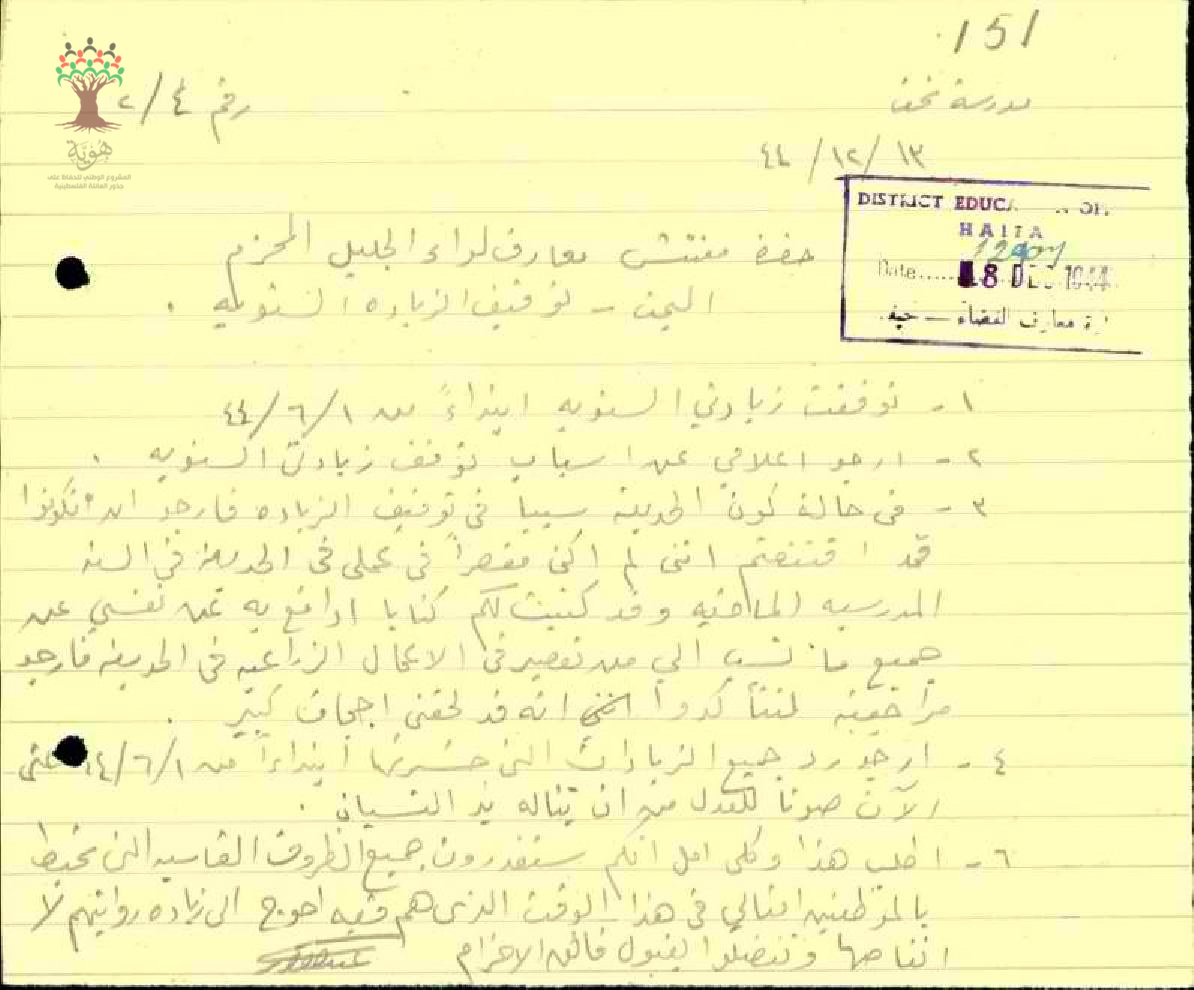 151
مدرسة نحف
رقم ٢/٤
١٣/١٢/٤٤
هُوِيَّة
المشروع الوطني للحفاظ على
جذور العائلة الفلسطينية
DISTRICT EDUCA
HAIFA
Date..... 18 DEC 1944
معارف القضاء — حيفا
حضرة مفتش معارف لواء الجليل المحترم
البحث - توقيف الزياده السنويه .
١- توقفت زيادتي السنويه ابتداءً من ١/٦/٤٤
٢- ارجو اعلامي عن اسباب توقف زيادتي السنويه .
٣- في حالة كون الحديقه سببا في توقيف الزياده فارجو ان تكونوا
قد اقتنعتم انني لم اكن مقصراً في عملي في الحديقة في السنه
المدرسيه الماضيه وقد كتبت لكم كتابا ادافع به عن نفسي عن
جميع ما نسب الي من تقصير في الاعمال الزراعيه في الحديقه فارجو
مراجعته لتتأكدوا انه قد لحقني اجحاف كبير .
٤- ارجو رد جميع الزيادات التي خسرتها ابتداءاً من ١/٦/٤٤ حتى
الآن صونا للعدل من ان تناله يد النسيان .
٦- اطلب هذا وكلي امل انكم ستقدرون جميع الظروف القاسيه التي تحيط
بالموظفين امثالي في هذا الوقت الذي هم فيه احوج الى زياده رواتبهم لا
انقاصها وتفضلوا بقبول فائق الاحترام